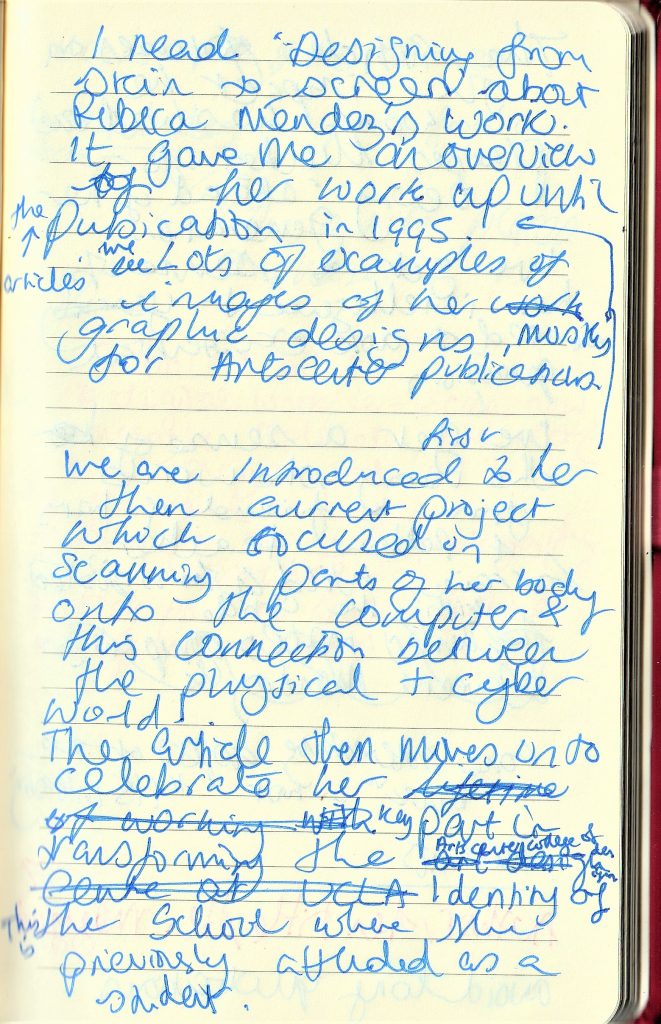 I read "Designing from
skin to screen about
Rebeca Mendez's work.
It gave me an overview
of her work up until
the
publication in 1995.
articles
we Lots of examples of
images of her work
graphic designs, mostly
for Artscenter publications.
first
we are introduced to her
then current project
which focused on
scanning parts of her body
onto the computer &
this connection between
the physical + cyber
world.
The article then moves on to
celebrate her lifetime
of working with key part in
transforming the Arts center college of design
Centre at UCLA Identity of
This is
the School where she
previously attended as a
student.